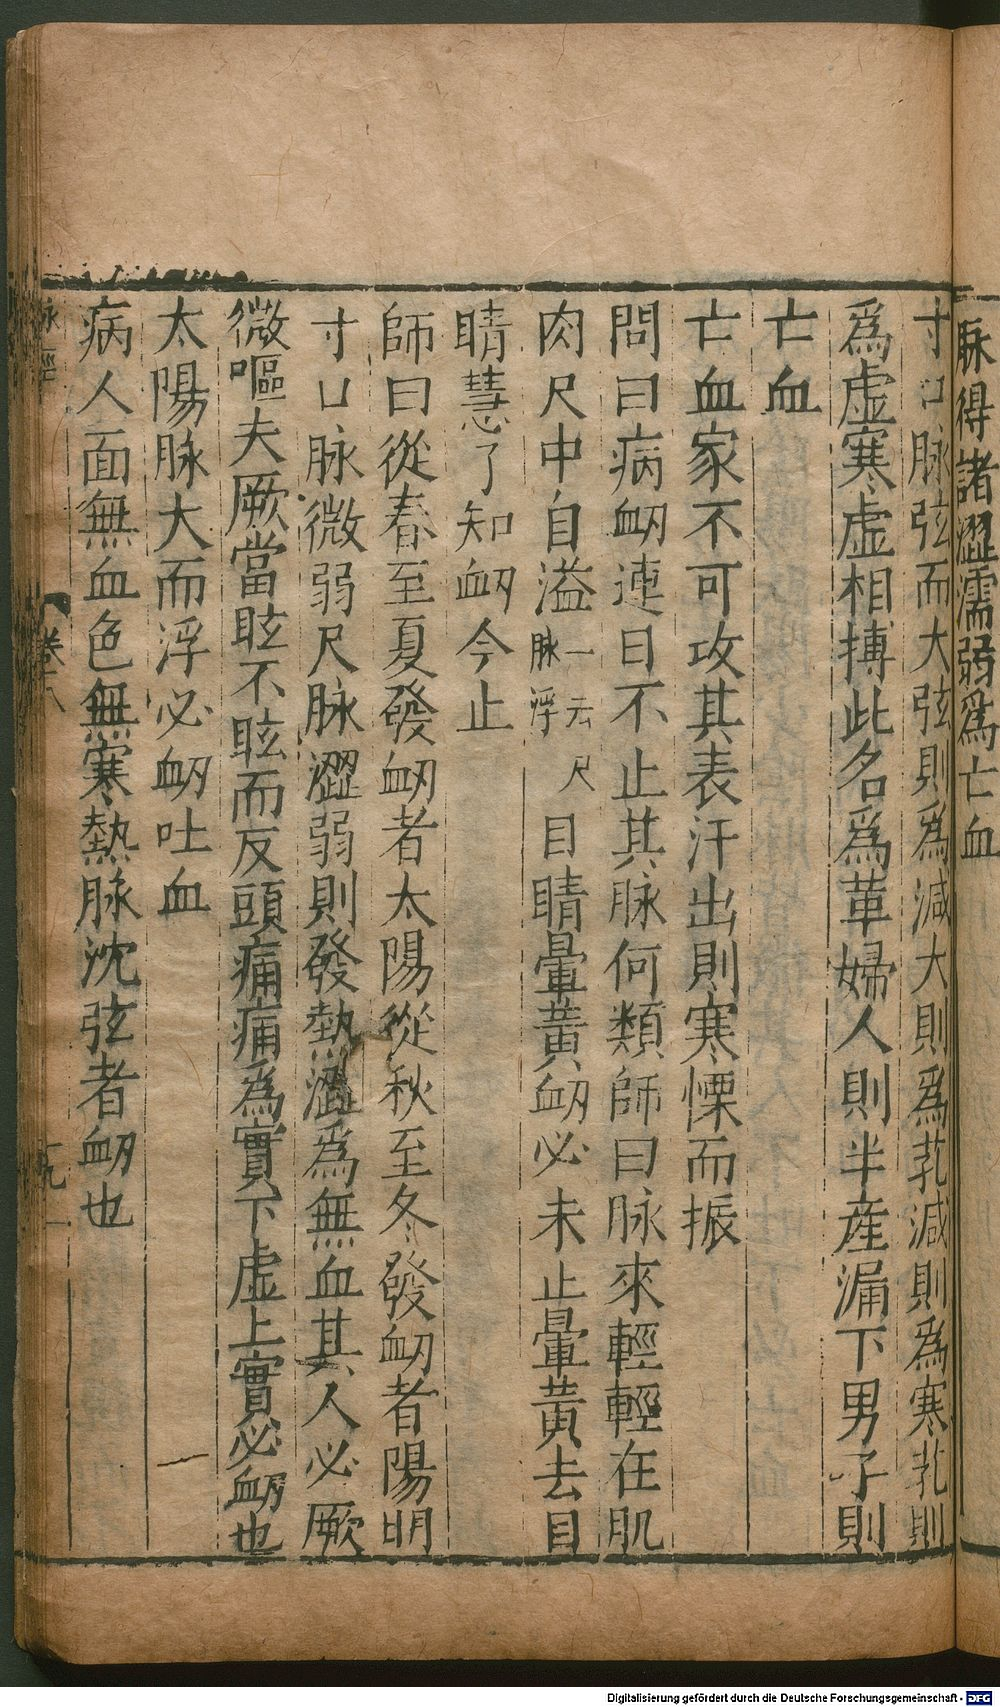 脉得諸濇濡弱爲亡血
寸口脉弦而大弦則爲減大則爲芤減則爲寒芤則
爲虛寒虛相搏此名爲革婦人則半産漏下男子則
亡血
亡血家不可攻其表汗出則寒慄而振
問曰病衂連日不止其脉何類師曰脉來輕輕在肌
肉尺中自溢一云尺脉浮目睛暈黃衂必未止暈黃去目
睛慧了知衂今止
師曰從春至夏發衂者太陽從秋至冬發衂者陽明
寸口脉微弱尺脉濇弱則發熱濇爲無血其人必厥
微嘔夫厥當眩不眩而反頭痛痛爲實下虛上實必衂也
太陽脉大而浮必衂吐血
病人面無血色無寒熱脉沈弦者衂也
脉經
卷八
Digitalisierung gefördert durch die Deutsche Forschungsgemeinschaft - DFG